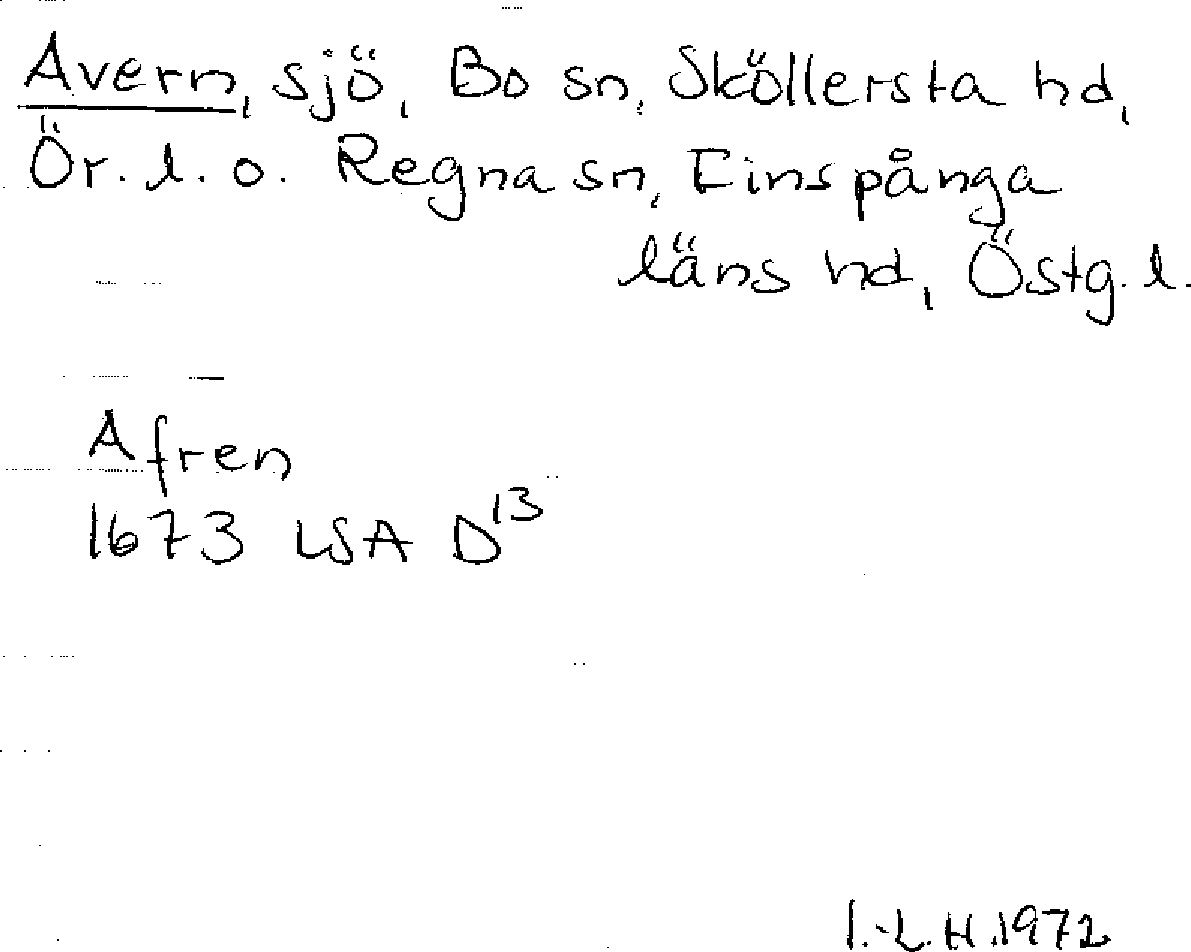 Avern, sjö, Bo sn, Sköllersta hd,
Ör. l. o. Regna sn, Finspånga
läns hd, Östg. l.
Afren
1673 LSA D¹³
I.-L. H. 1972